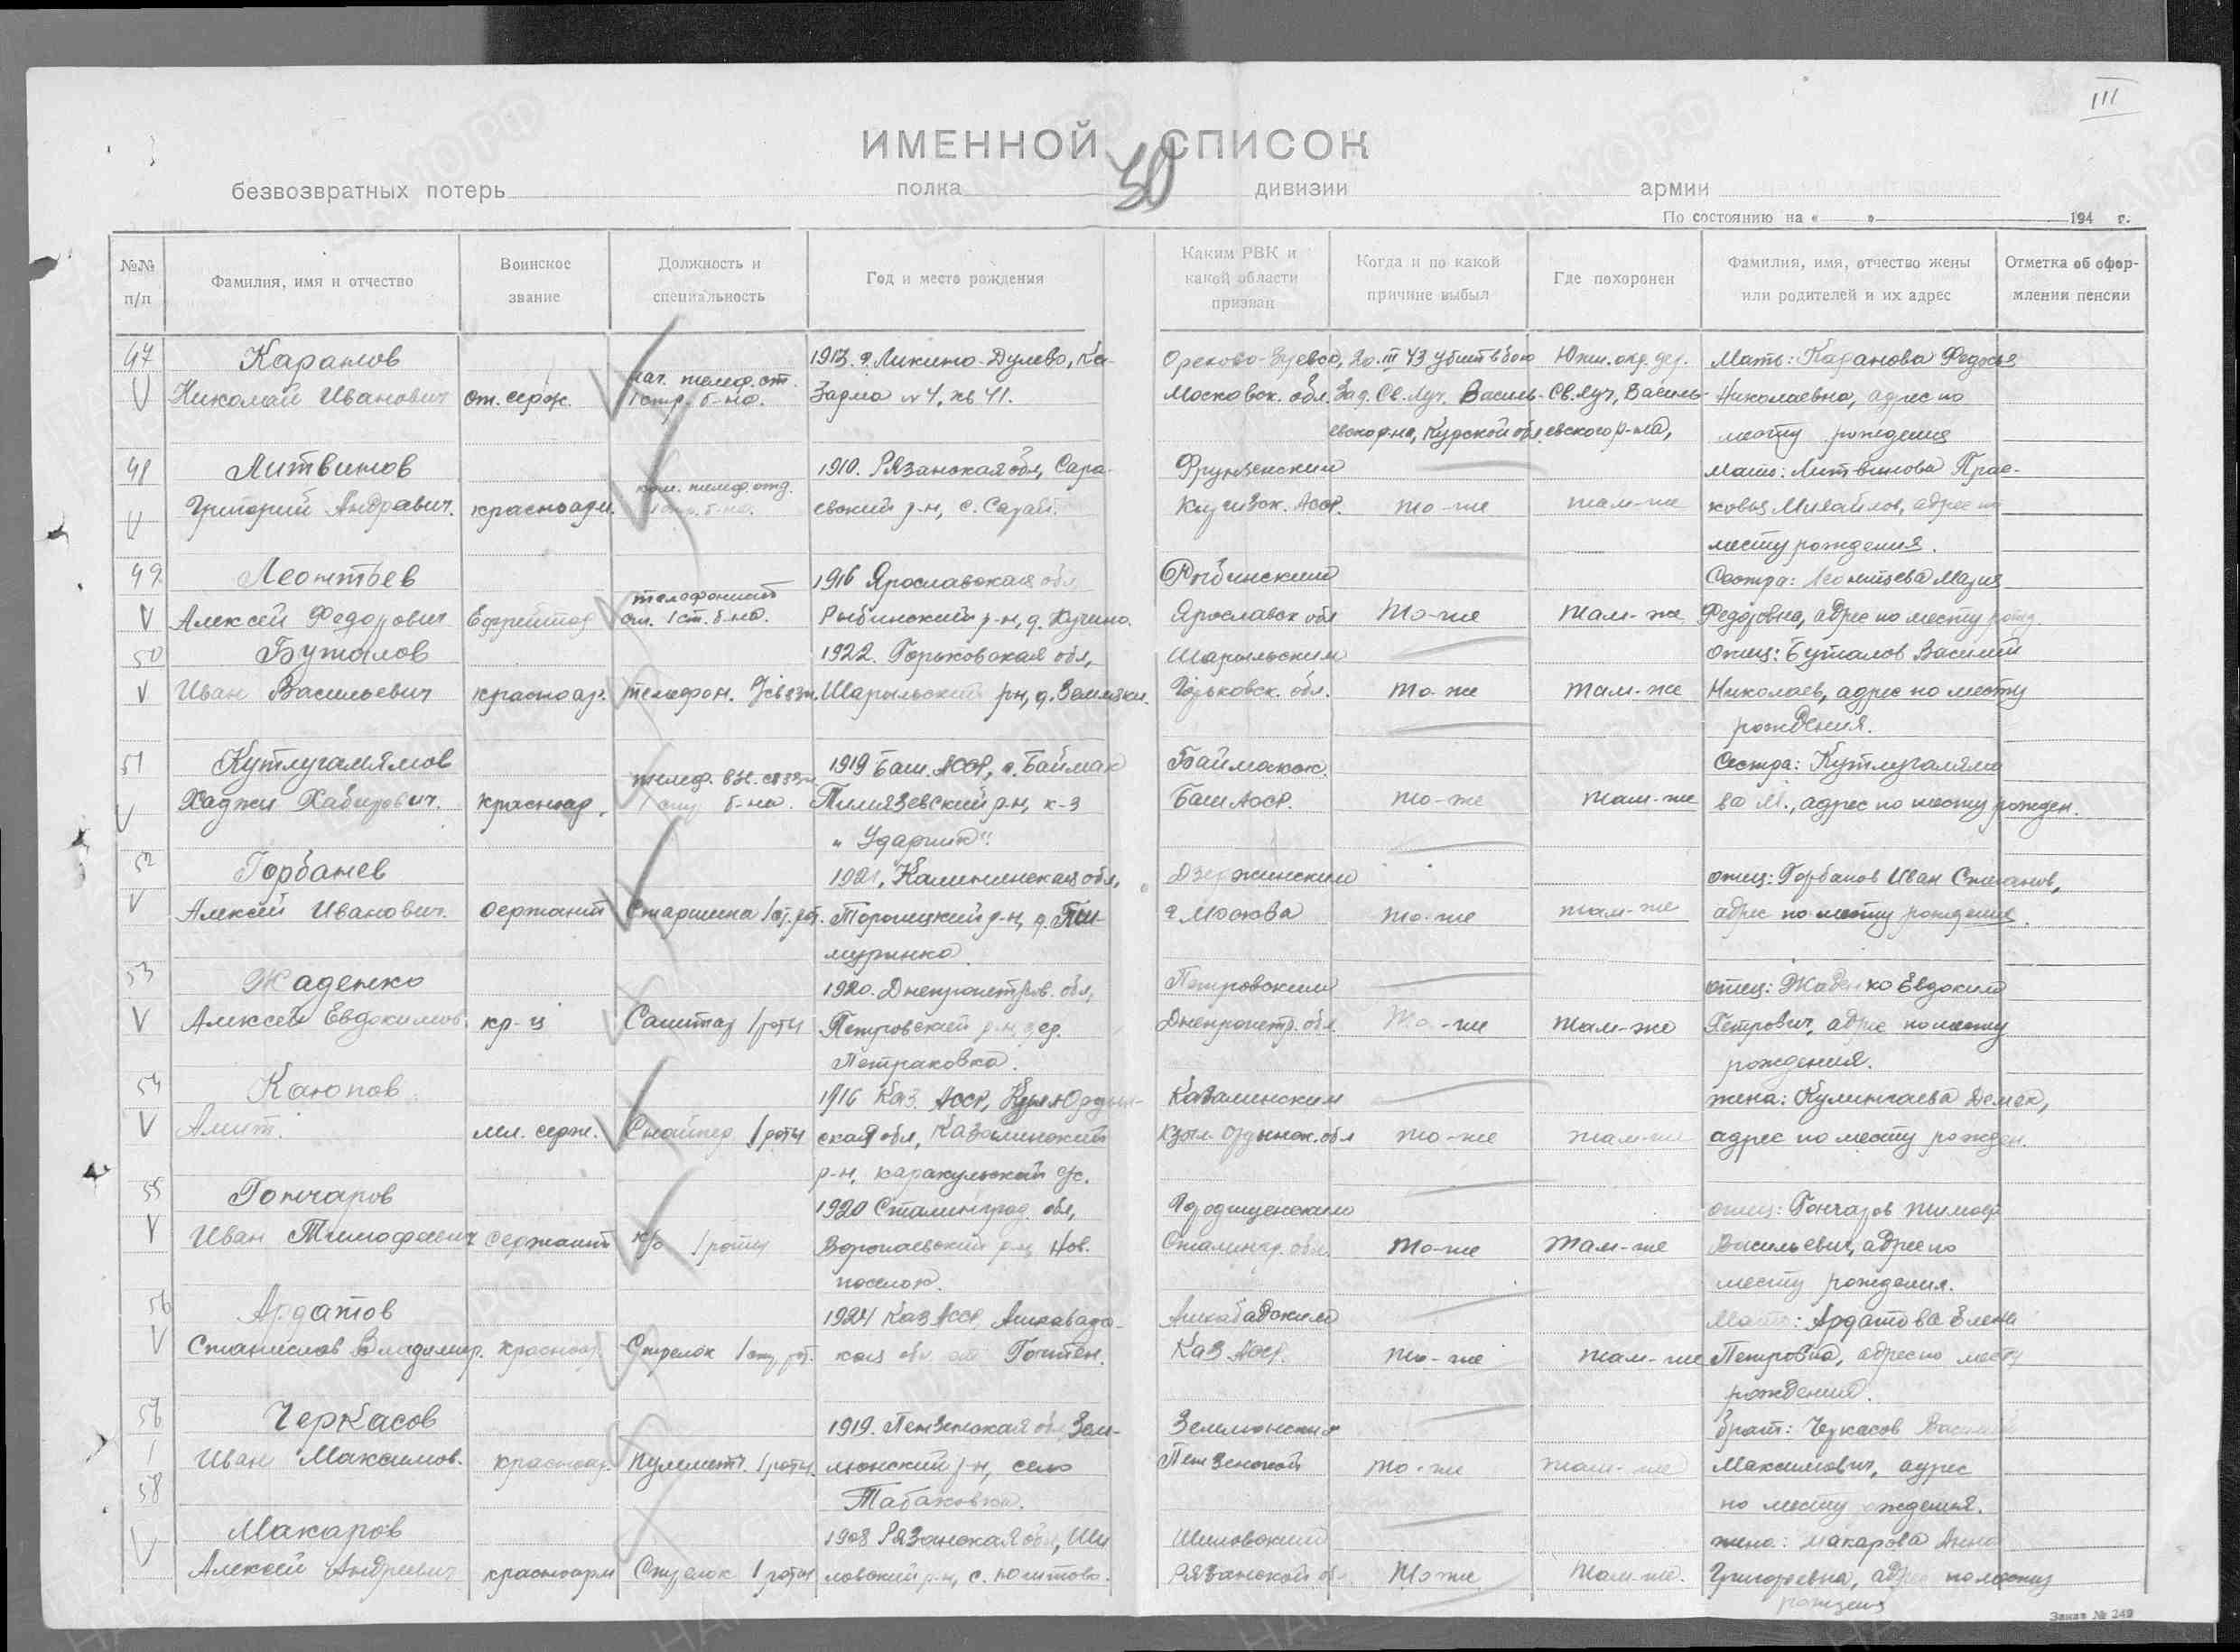 III
ИМЕННОЙ СПИСОК
50
безвозвратных потерь полка дивизии армии
По состоянию на « » 194 г.
№№ п/п
Фамилия, имя и отчество
Воинское звание
Должность и специальность
Год и место рождения
Каким РВК и какой области призван
Когда и по какой причине выбыл
Где похоронен
Фамилия, имя, отчество жены или родителей и их адрес
Отметка об оформлении пенсии
47 Каранов 1913. г. Ликино-Дулево, Ка- Орехово-Зуевск, 20.III 43 убит в бою Южн. окр. дер. Мать: Каранова Федосья
Николай Иванович ст. серж. нач. телеф. ст. 1 стр. б-на. Зарма № 4, кв 41. Московск. обл. Зап. Св. Луч. Василь- Св. Луч, Василь- Николаевна, адрес по
евского р-на, Курской обл евского р-на, месту рождения
48 Литвинов 1910. Рязанская обл, Сара- Фрунзенским мать: Литвинова Прас-
Григорий Андравич. красноарм. ком. телеф. отд. 1 стр. б-на. евский р-н, с. Сараи. Киргизск. АССР. то-же там-же ковья Михайлов, адрес по
месту рождения.
49 Леонтьев 1916 Ярославская обл Рыбинским Сестра: Леонтьева Мария
Алексей Федорович Ефрейтор телефонист ст. 1 ст. б-на. Рыбинский р-н, д. Кучино. Ярославск обл то-же там-же Федоровна, адрес по месту рожд
50 Буталов 1922. Горьковская обл, Шарыльским отец: Буталов Василий
Иван Васильевич красноар. телефон. Шарыльский р-н, д. Горьковск. обл. то-же там-же Николаев, адрес по месту
рождения.
51 Кутлугалямов 1919 Баш. АССР, с. Баймак Баймакск. Сестра: Кутлугалямо
Хаджи Хабирович. красноар. телеф. вз. связи 1 стр б-на. р-н, к-з Баш АССР. то-же там-же ва М., адрес по месту рожден.
„Ударник"
52 Горбанев Калининская обл, Дзержинским отец: Горбанов Иван Степанов,
Алексей Иванович. сержант Старшина 1 ст. рот. Торопецкий р-н, д. г Москва то-же там-же адрес по месту рождения.
53 Жаденко 1920. Днепропетров. обл, Петровским отец: Жаденко Евдоким
Алексей Евдокимов. кр-ц Санитар 1 роты Петровский р-н, дер. Днепропетр. обл то-же там-же Петрович, адрес по месту
Петраковка. рождения.
54 Каюпов 1916 Каз. АССР, Казалинским жена: Кулингаева Демек,
Амит. мл. серж. Снайпер 1 роты ская обл, Казалинский Кзыл-Ордынск. обл то-же там-же адрес по месту рожден.
р-н, каракульский с/с.
55 Гончаров 1920 Сталинград. обл, Городищенским отец: Гончаров Тимоф
Иван Тимофеевич сержант к/о 1 роты р-н, Нов. Сталингр. обл. то-же там-же Васильевич, адрес по
поселок. месту рождения.
56 Ардатов 1924 Каз АССР, Ашхабадским Мать: Ардатова Елена
Станислав Владимир. красноар. Стрелок 1 стр. рот. кая обл Каз АССР. то-же там-же Петровна, адрес по месту
рождения.
57 Черкасов 1919. Пензенская обл Зем- Земетчинским брат: Черкасов Василий
Иван Максимов. красноар. пулеметч. 1 роты. р-н, село Пензенской то-же там-же Максимович, адрес
Табаковка. по месту рождения.
58 Макаров 1908 Рязанская обл, Ши Шиловский жена: Макарова Анна
Алексей Андреевич красноарм Стрелок 1 роты ловский р-н, с. Юштово. Рязанской об то же там-же. Григорьевна, адрес по месту
рождения
Заказ № 249